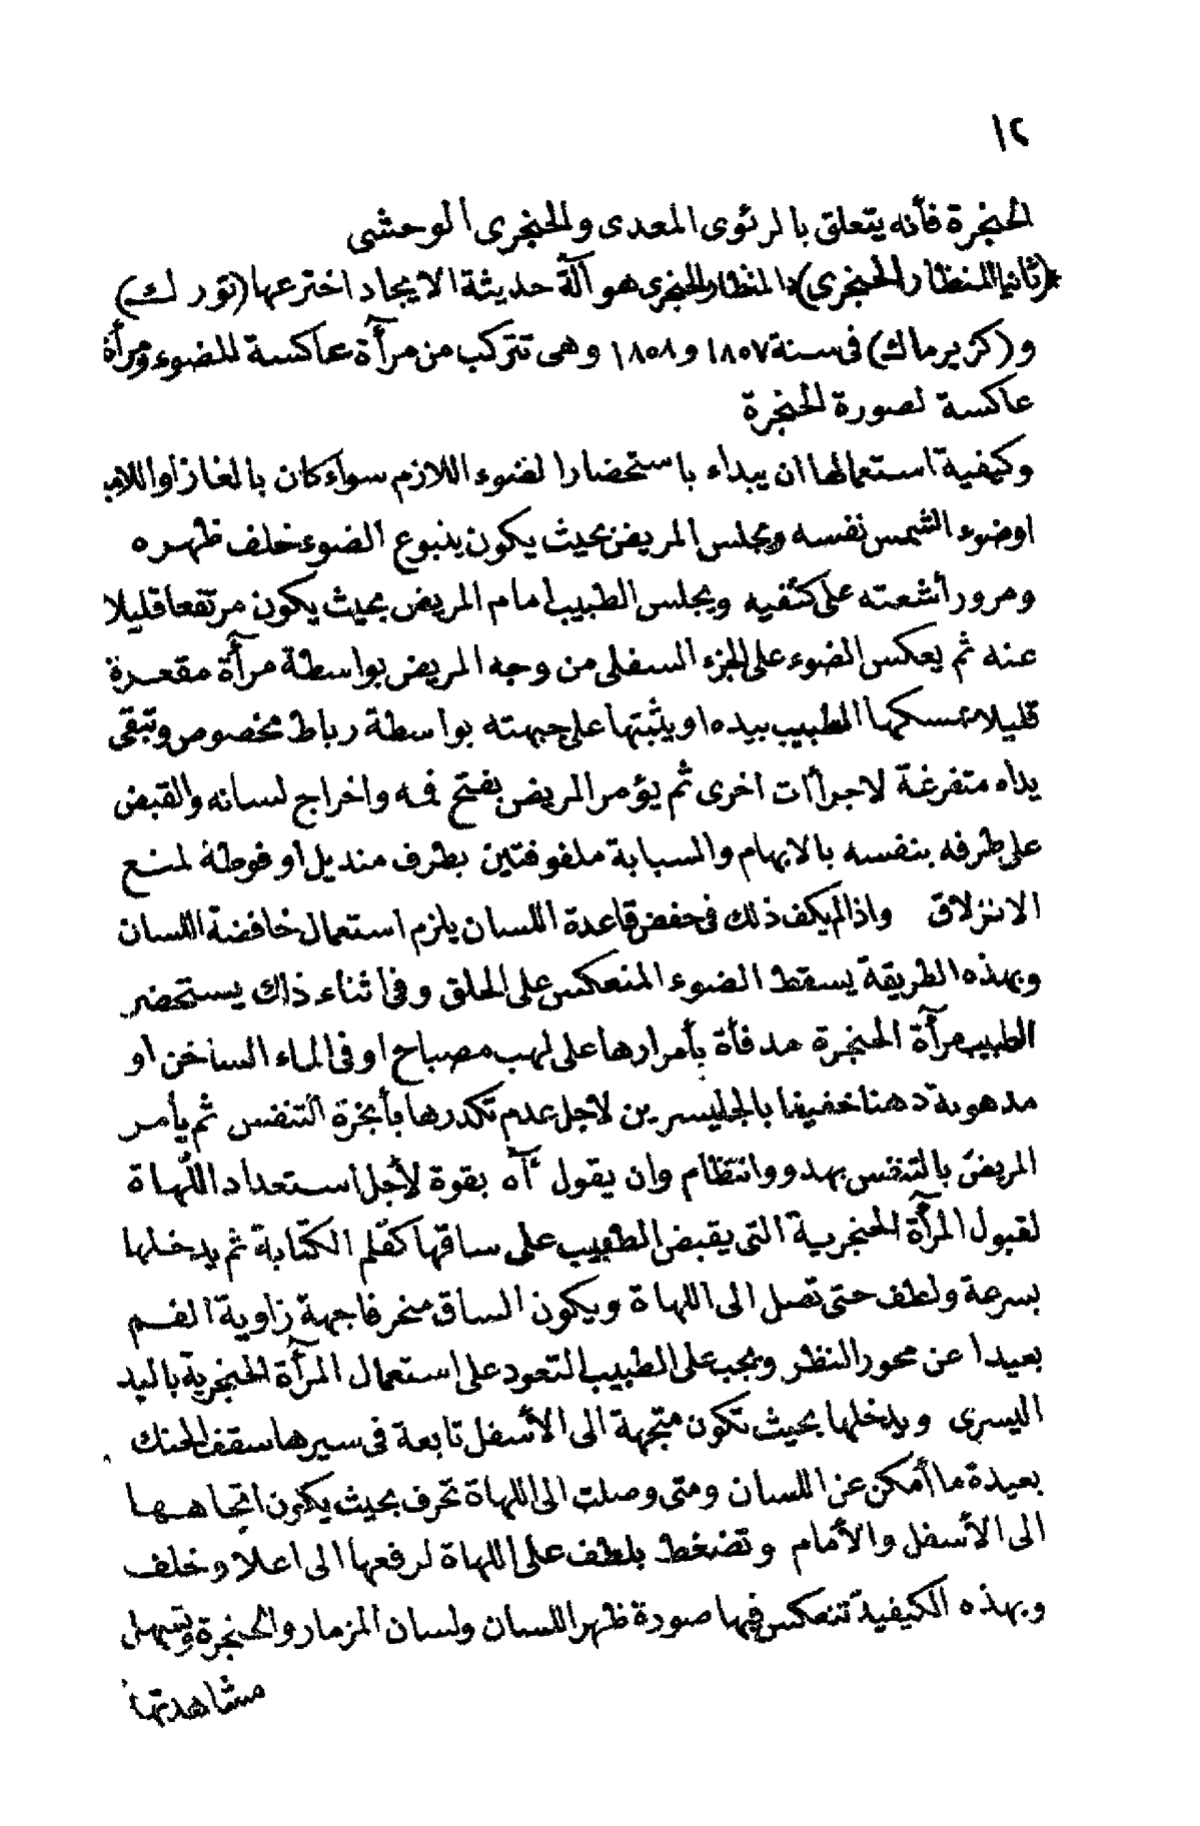 ١٢
الحنجرة فأنه يتعلق بالرئوى المعدى والحنجرى الوحشى
*(ثانيا المنظار الحنجرى) المنظار الحنجرى هو آلة حديثة الايجاد اخترعها (تورك)
و(كزيرماك) فى سنة ١٨٥٧ و ١٨٥٨ وهى تتركب من مرآة عاكسة للضوء ومرأة
عاكسة لصورة الحنجرة
وكيفية استعمالها ان يبداء باستحضار الضوء اللازم سواء كان بالغاز او
اوضوء الشمس نفسه ويجلس المريض بحيث يكون ينبوع الضوء خلف ظهره
ومرور أشعته على كتفيه ويجلس الطبيب امام المريض بحيث يكون مرتفعا قليلا
عنه ثم يعكس الضوء على الجزء السفلى من وجه المريض بواسطة مرأة مقعرة
قليلا يمسكها الطبيب بيده او يثبتها على جبهته بواسطة رباط مخصوص وتبقى
يداه متفرغة لاجرأات اخرى ثم يؤمر المريض بفتح فه واخراج لسانه والقبض
على طرفه بنفسه بالابهام والسبابة ملفوفتين بطرف منديل او فوطة لمنع
الانزلاق واذا لم يكف ذلك فى حفض قاعدة اللسان يلزم استعمال خافضة اللسان
وبهذه الطريقة يسقط الضوء المنعكس على الحلق وفى اثناء ذاك يستحضر
الطبيب مرآة الحنجرة مدفأة بأمرارها على لهب مصباح او فى الماء الساخن او
مدهوبة دهنا خفيفا بالجليسرين لاجل عدم تكدرها بأبخرة التنفس ثم يأمر
المريض بالتنفس بهدو وانتظام وان يقول آه بقوة لأجل استعداد اللهاة
لقبول المرآة الحنجرية التى يقبض الطبيب على ساقها كقلم الكتابة ثم يدخلها
بسرعة ولطف حتى تصل الى اللهاة ويكون الساق منحرفا جهة زاوية الفم
بعيدا عن محور النظر ويجب على الطبيب التعود على استعمال المرآة الحنجرية باليد
اليسرى ويدخلها بحيث تكون متجهة الى الأسفل تابعة فى سيرها سقف الحنك
بعيدة ما أمكن عن اللسان ومتى وصلت الى اللهاة تحرف بحيث يكون اتجاهها
الى الأسفل والأمام وتضغط بلطف على اللهاة لرفعها الى اعلا وخلف
وبهذه الكيفية تنعكس فيها صورة ظهر اللسان ولسان المزمار والحنجرة وتسهل
مشاهدتها